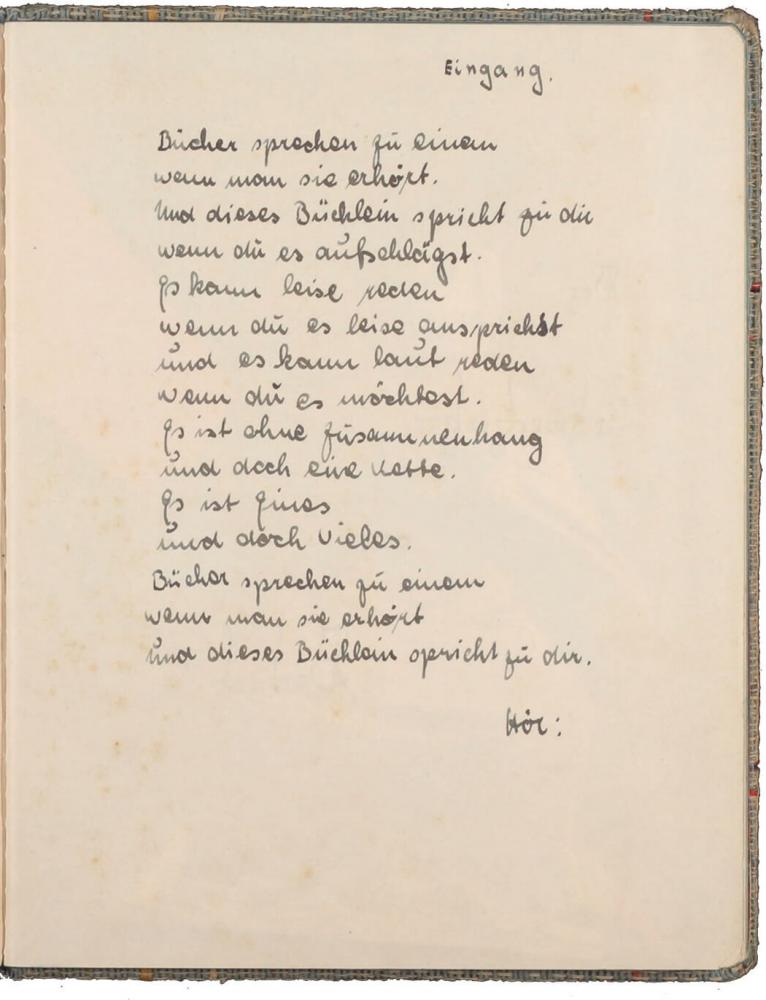 Eingang.
Bücher sprechen zu einem
wenn man sie erhört.
Und dieses Büchlein spricht zu dir
wenn du es aufschlägst.
Es kann leise reden
wenn du es leise ansprichst
und es kann laut reden
wenn du es möchtest.
Es ist ohne Zusammenhang
und doch eine Kette.
Es ist Eines
und doch Vieles.
Bücher sprechen zu einem
wenn man sie erhört
und dieses Büchlein spricht zu dir.
Hör: